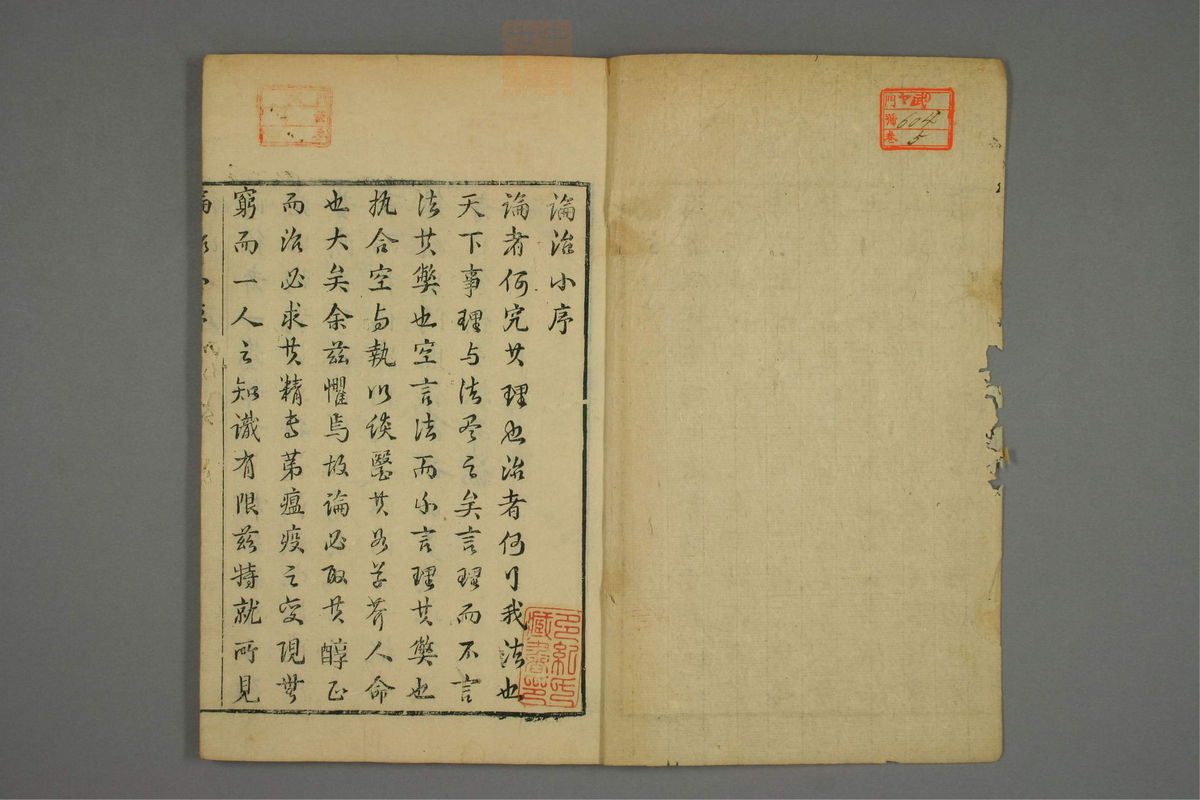 門 号 巻 武
604
5
論治小序
論者何究其理也治者何行我法也
天下事理与法尽之矣言理而不言
法其弊也空言法而不言理其弊也
执合空与執以谈醫其草芥人命
也大矣余兹懼焉故論必取其醇正
而治必求其精专第瘟疫之变現無
窮而一人之知識有限兹特就所見